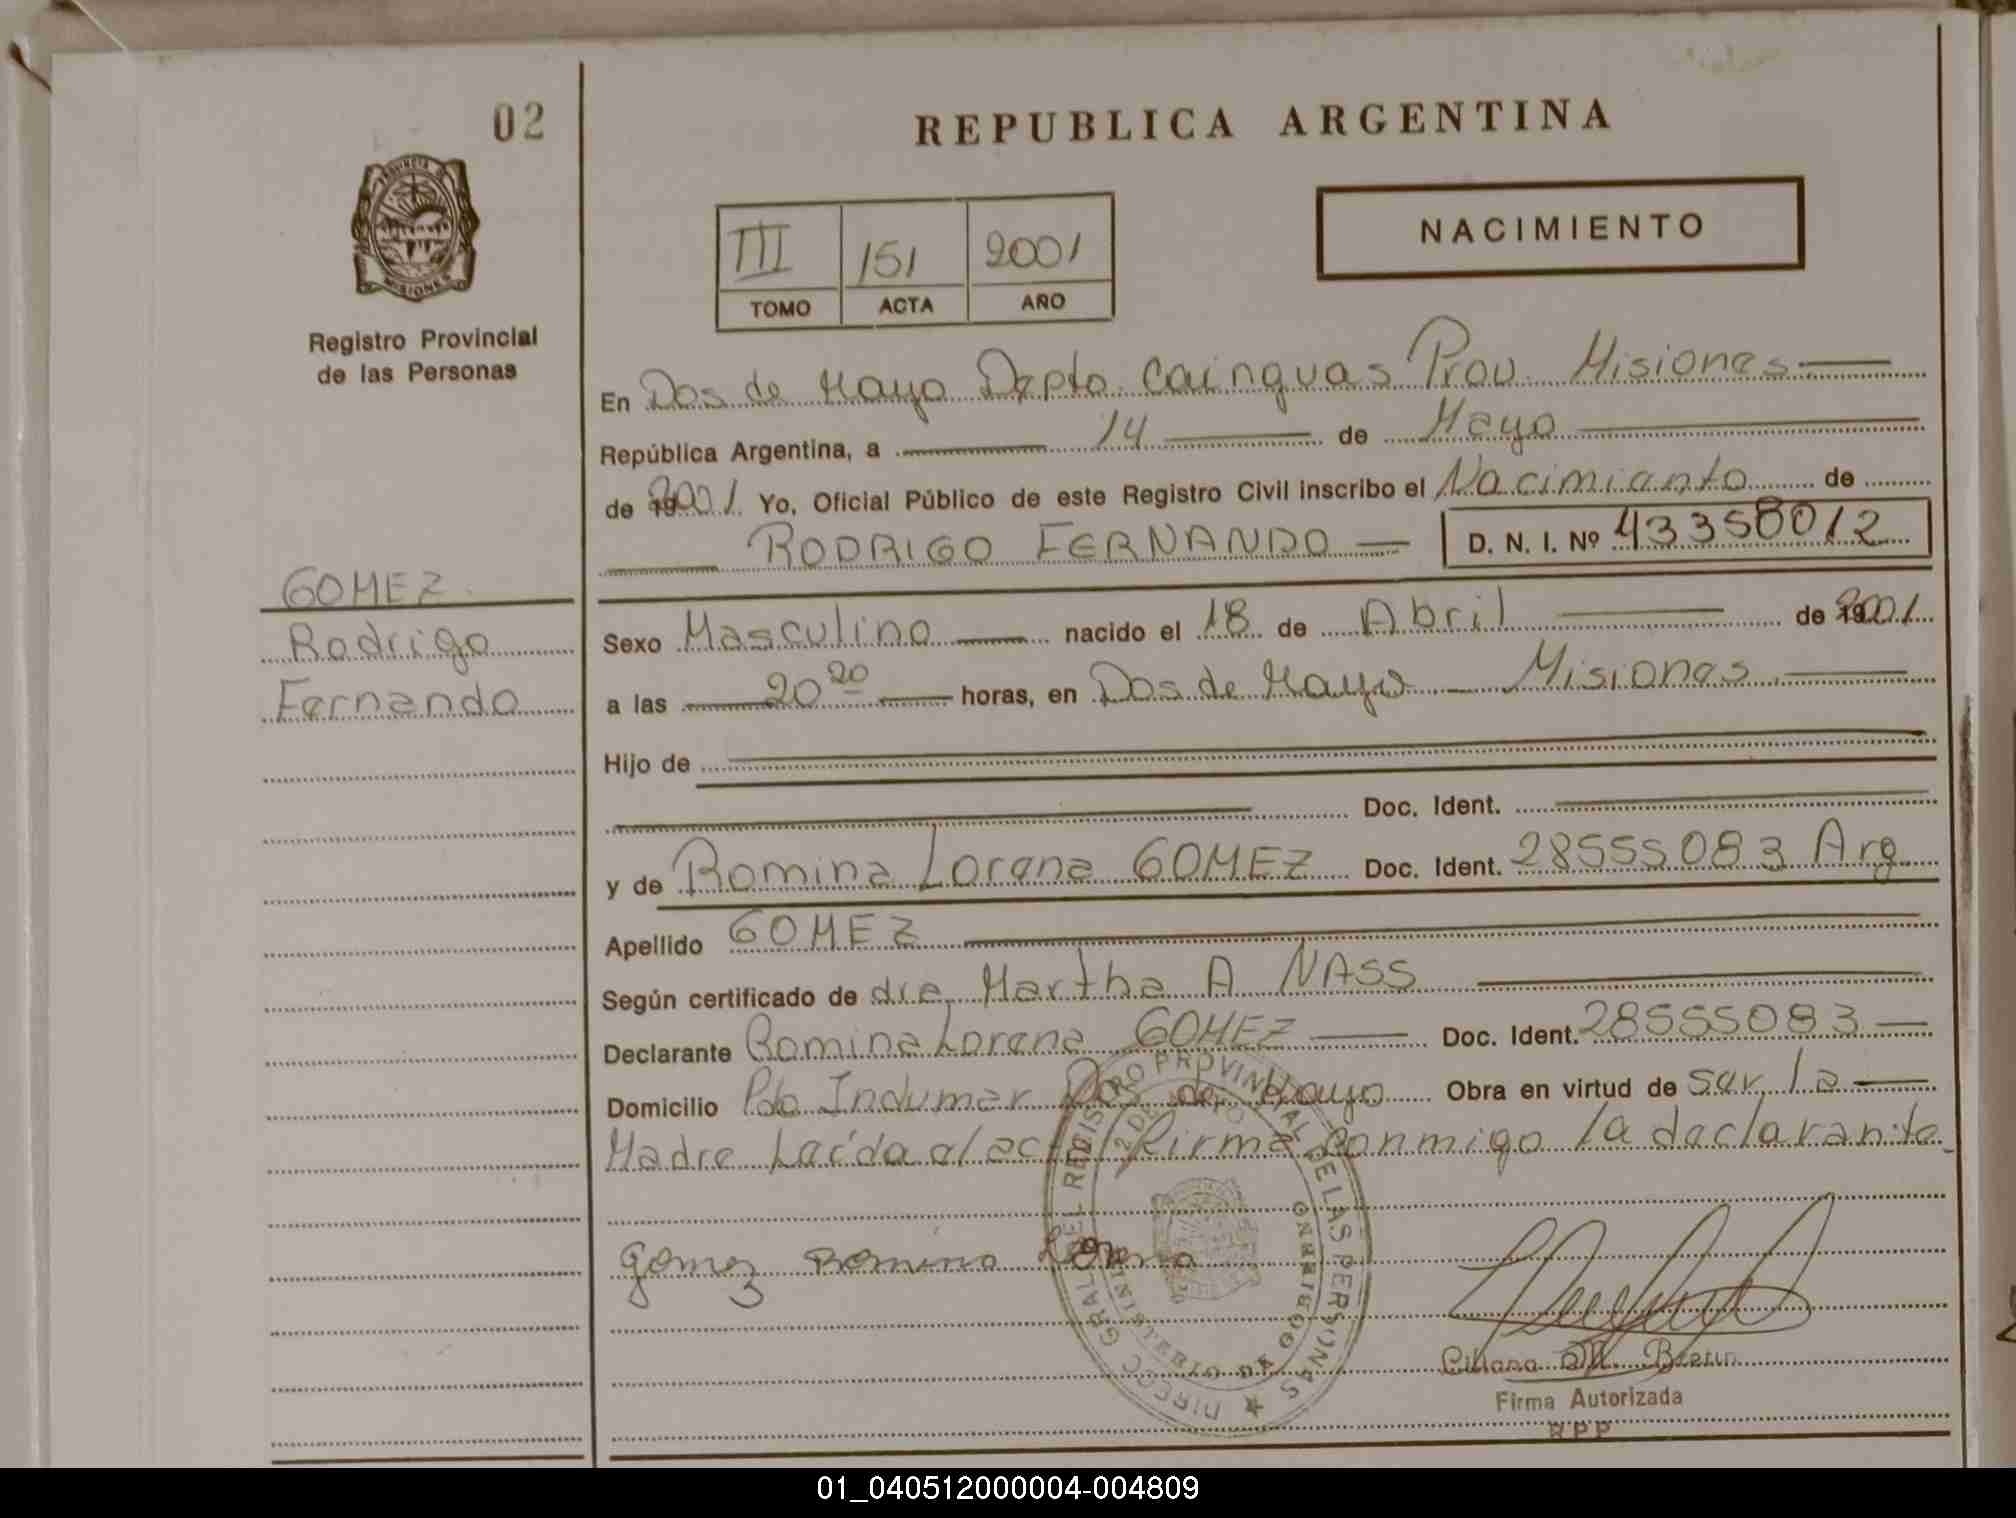 02
REPUBLICA ARGENTINA
PROVINCIA DE
MISIONES
Registro Provincial
de las Personas
NACIMIENTO
III 151 2001
TOMO ACTA AÑO
En Dos de Mayo Depto. Cainguas Prov. Misiones
República Argentina, a 14 de Mayo
de 2001 Yo, Oficial Público de este Registro Civil inscribo el Nacimiento de
RODRIGO FERNANDO D. N. I. Nº 43358012
GOMEZ
Rodrigo
Fernando
Sexo Masculino nacido el 18 de Abril de 2001
a las 20 20 horas, en Dos de Mayo - Misiones
Hijo de
Doc. Ident.
y de Romina Lorena GOMEZ Doc. Ident. 28555083 Arg
Apellido GOMEZ
Según certificado de dra. Martha A NASS
Declarante Romina Lorena GOMEZ Doc. Ident. 28555083
Domicilio Pdo Indumar Dos de Mayo Obra en virtud de ser la
Madre Leída el acta firma conmigo la declarante
Gomez Romina Lorena
DIRECC GRAL DEL REGISTRO PROVINCIAL DE LAS PERSONAS
MINISTERIO DE GOBIERNO
2 DE MAYO
Firma Autorizada
RPP
01_040512000004-004809